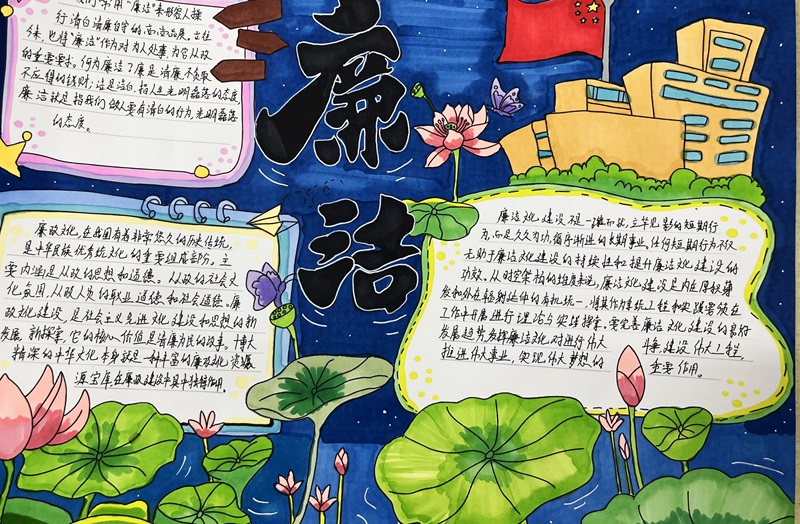 我们常用“廉洁”来形容人操
行清白清廉自守的高尚品质。古往
今来,也将“廉洁”作为对为人处事为官从政
的重要要求。何为廉洁?廉是清廉不贪取
不应得的钱财;洁是洁白,指人生光明磊落的态度,
廉洁就是指我们做人要有清白的行为,光明磊落
的态度。
廉洁
廉政文化,在我国有着非常悠久的历史传统,
是中华民族优秀传统文化的重要组成部分。主
要内涵是从政的思想和道德。从政的社会文
化氛围,从政人员的职业道德和社会道德。廉
政文化建设,是社会主义先进文化建设和思想的新
发展,新探索,它的核心价值是清廉为民的政事。博大
精深的中华文化本身就是一种丰富的廉政文化资源,
源宝库在廉政建设中具有独特作用。
廉洁文化建设不是一蹴而就,立竿见影的短期行
为,而是久久为功,循序渐进的长期事业,任何短期行为不仅
无助于廉洁文化建设的持续性和提升廉洁文化建设的
功效。从时空架构的维度来说,廉洁文化建设是内在厚积薄
发和外在辐射延伸的有机统一,将其作为系统工程和实践要须在
工作中开展进行理论与实践探索,要完善廉洁文化建设的良好
发展趋势发挥廉洁文化对进行伟大 斗争,建设伟大工程,
推进伟大事业,实现伟大梦想的 重要作用。